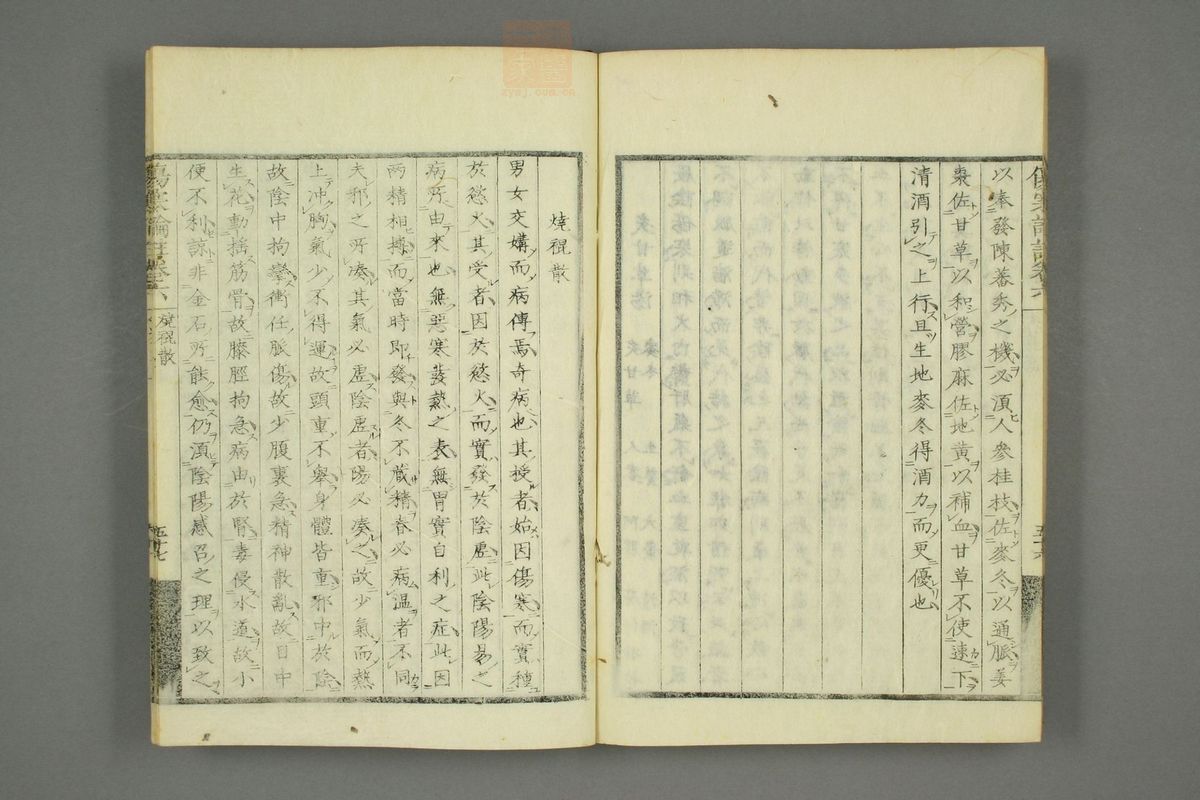 以奉發陳蕃秀之機必須人參桂枝佐麥冬以通脈姜
棗佐甘草以和營膠麻佐地黃以補血甘草不使速下
清酒引之上行且生地麥冬得酒力而更優也
燒裩散
男女交媾而病傳焉奇病也其授者始因傷寒而實種
於慾火其受者因於慾火而實發於陰虛此陰陽易之
病所由來也無惡寒發熱之表無胃實自利之症此因
两精相搏而當時即發與冬不藏精春必病温者不同
夫邪之所凑其氣必虛陰虛者陽必凑之故少氣而熱
上冲胸氣少不得運故頭重不舉身體皆重邪中於陰
故陰中拘攣衝任脈傷故少腹裏急精神散亂故目中
生花動搖筋骨故膝脛拘急病由於腎毒侵水道故小
便不利諒非金石所能愈仍須陰陽感召之理以致之
燒裩散
五十七
zysj.com.cn